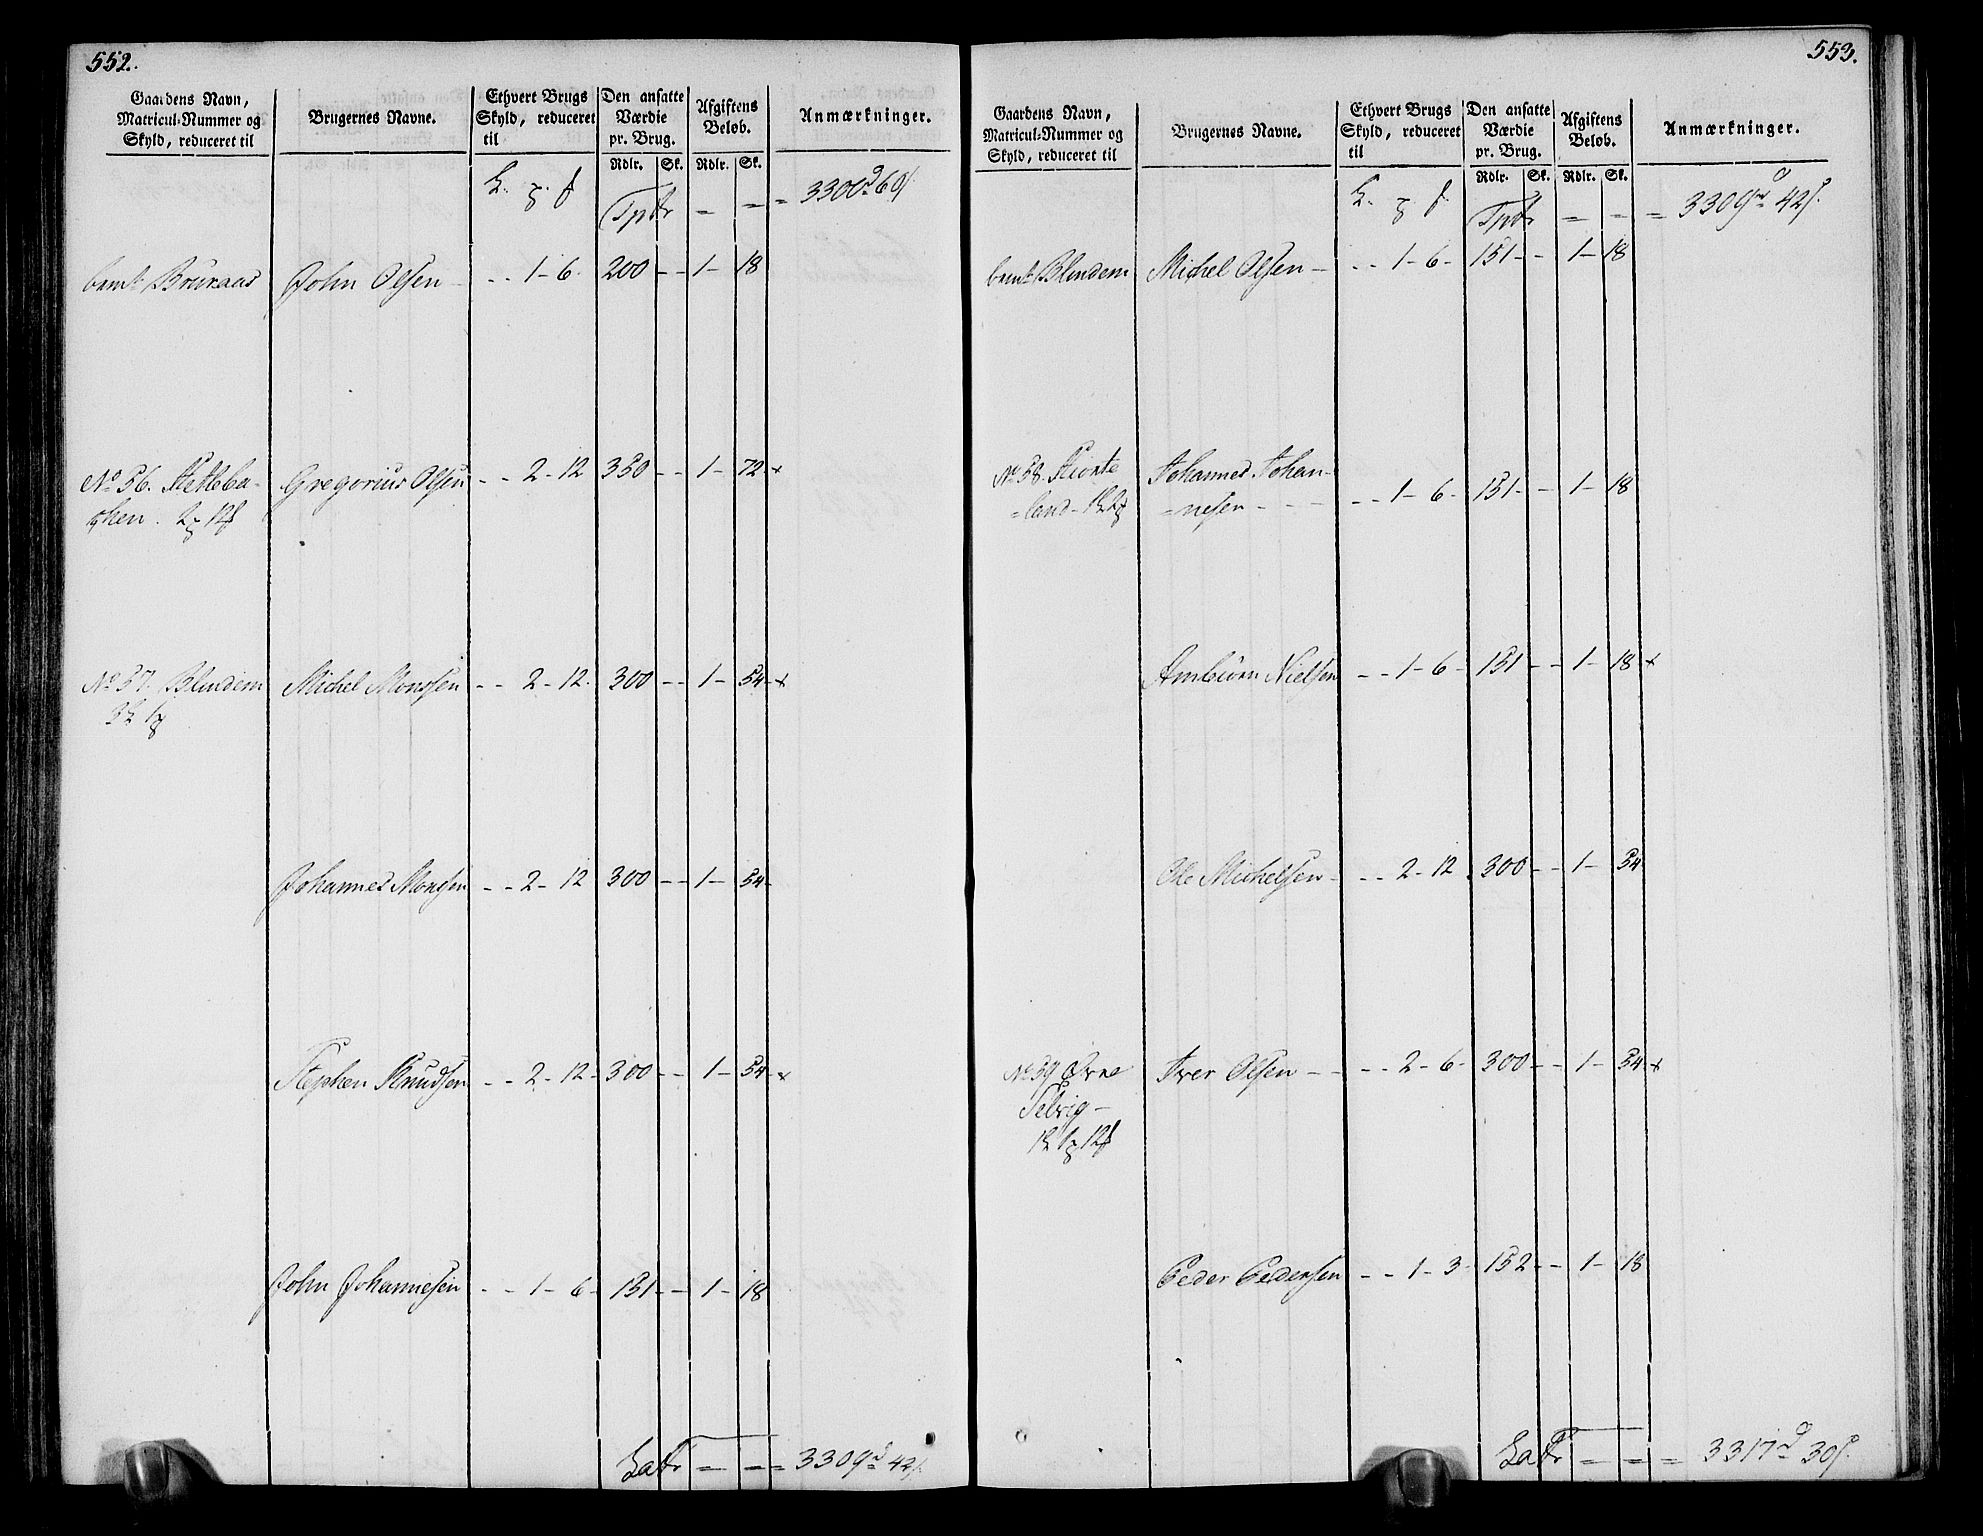 552.
Gaardens Navn, Matricul-Nummer og Skyld, reduceret til
Brugernes Navne.
Ethvert Brugs Skyld, reduceret til
Den ansatte Værdie pr. Brug.
Afgiftens Beløb.
Anmærkninger.
Rdlr. Sk. Rdlr. Sk.
Tptr = = = 3300 d 60 s.
bemt Bruraas John Olsen - - 1 - 6 - 200 - - 1 - 18
No 56. Gregorius Olsen - - 2 - 12 350 - - 1 - 72 x
2 12
No 57. Blindem Michel Monssen - - 2 - 12 - 300 - - 1 - 54 - x
3 1
Johannes Monsen - - 2 - 12 300 - - 1 - 54 -
Stephen Knudsen - - 2 - 12 - 300 - - 1 - 54 - x
John Johannesen - - 1 - 6 - 151 - - 1 - 18
Latr = = = 3309 d 42 s.
553.
Gaardens Navn, Matricul-Nummer og Skyld, reduceret til
Brugernes Navne.
Ethvert Brugs Skyld, reduceret til
Den ansatte Værdie pr. Brug.
Afgiftens Beløb.
Anmærkninger.
Rdlr. Sk. Rdlr. Sk.
Tptr = = = 3309 d 42 s.
bemt Blindem Michel Olsen - - - 1 - 6 - 151 - - 1 - 18
No 58. Johannes Johan-
=land =nesen - - - - - 1 - 6 - 151 - - 1 - 18
Nielsen - - 1 - 6 - 151 - - 1 - 18 x
Ole Michelsen - - - 2 - 12 300 - - 1 - 54
No 59 Iver Olsen - - - - 2 - 6 - 300 - - 1 - 54 x
Selvig -
1 1 12
Peder Pedersen - - 1 - 3 - 152 - - 1 - 18
Latr = = = 3317 d 30 s.